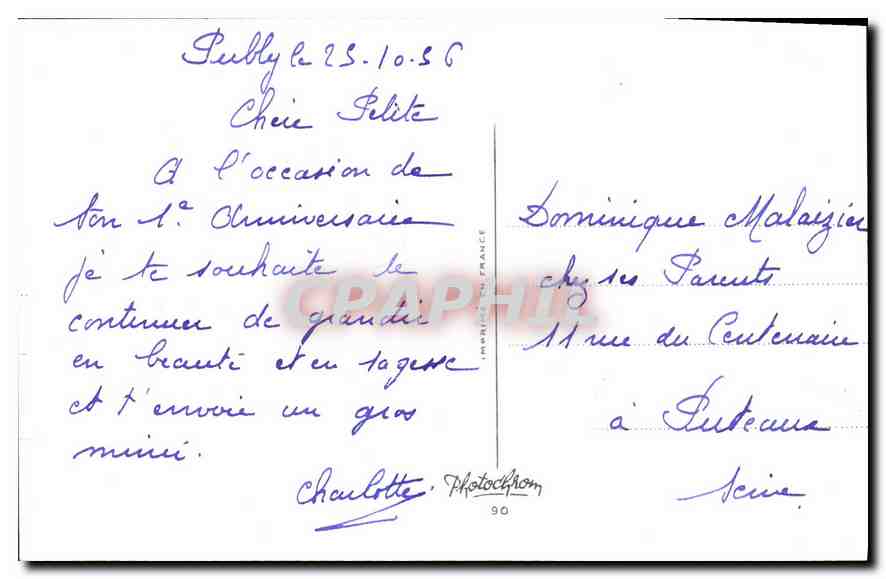 le 25-10-56
Chère Petite
A l'occasion de
ton 1e Anniversaire
je te souhaite le
continuer de grandir
en beauté et en sagesse
et t'envoie un gros
mimi.
Charlotte.
Dominique Malaizier
chez ses Parents
11 rue du Centenaire
à Puteaux
Seine
IMPRIMÉ EN FRANCE
Photochrom
90
CPAPHIL